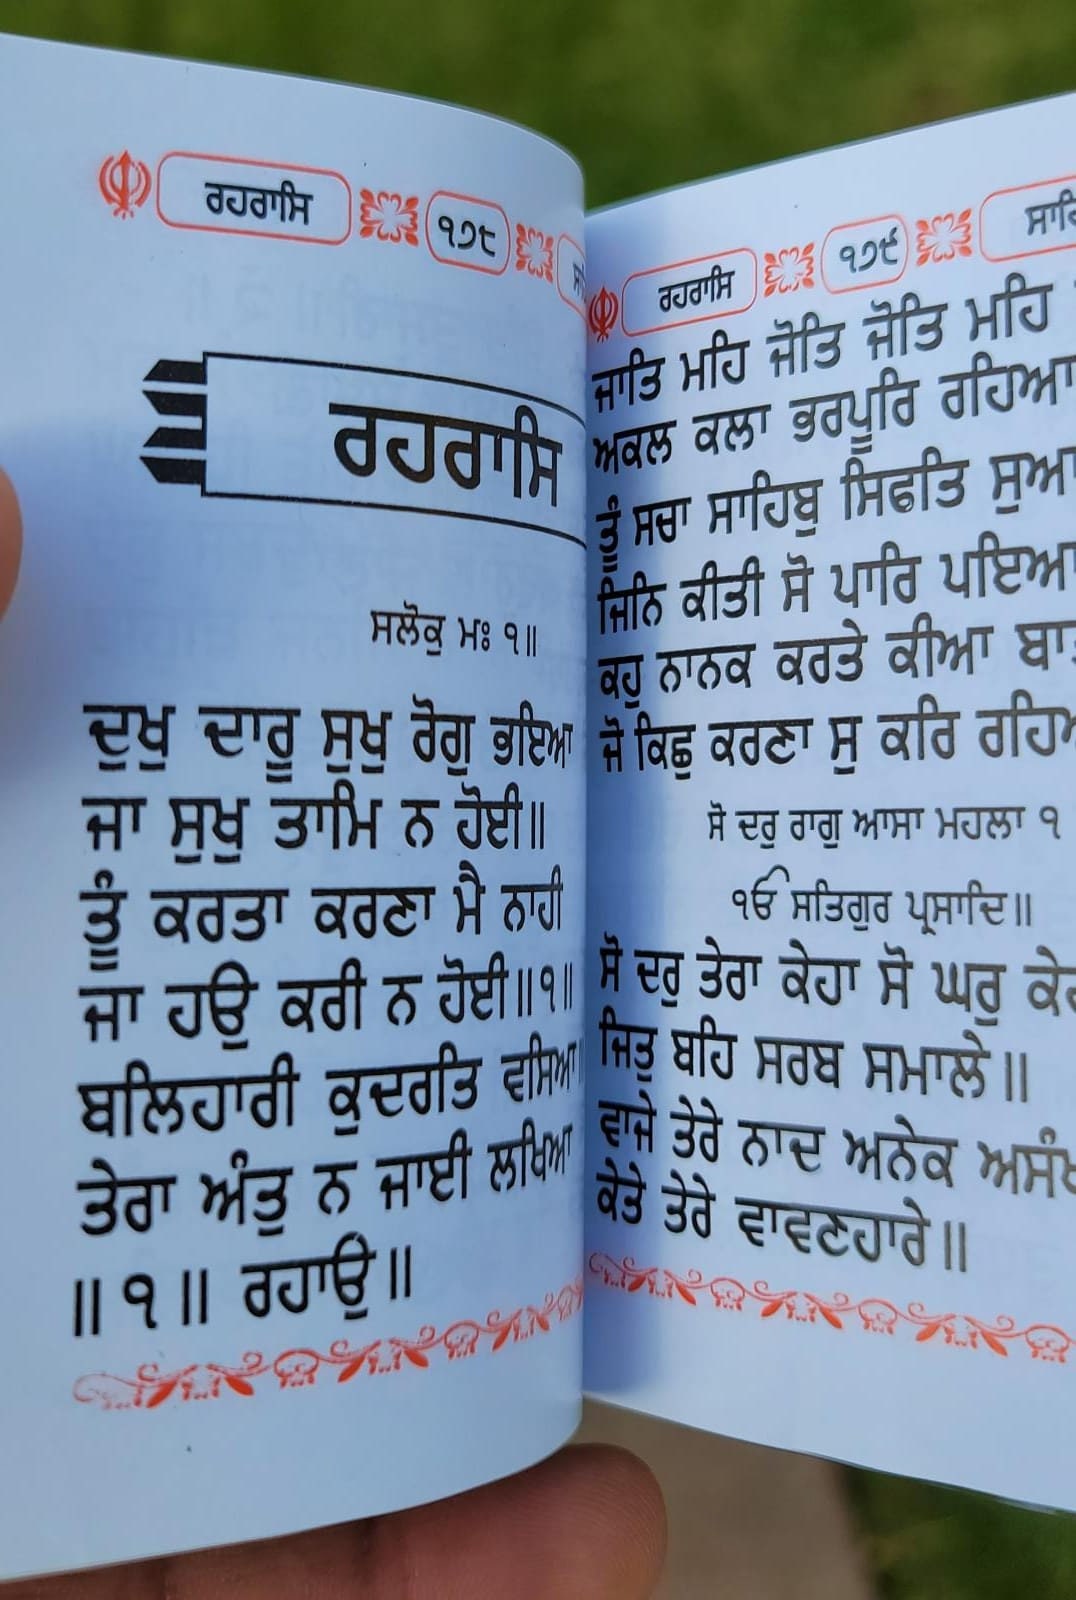 ਰਹਰਾਸਿ
੧੭੮
ਰਹਰਾਸਿ
ਸਲੋਕੁ ਮਃ ੧॥
ਦੁਖੁ ਦਾਰੂ ਸੁਖੁ ਰੋਗੁ ਭਇਆ
ਜਾ ਸੁਖੁ ਤਾਮਿ ਨ ਹੋਈ॥
ਤੂੰ ਕਰਤਾ ਕਰਣਾ ਮੈ ਨਾਹੀ
ਜਾ ਹਉ ਕਰੀ ਨ ਹੋਈ॥੧॥
ਬਲਿਹਾਰੀ ਕੁਦਰਤਿ ਵਸਿਆ॥
ਤੇਰਾ ਅੰਤੁ ਨ ਜਾਈ ਲਖਿਆ
॥੧॥ ਰਹਾਉ॥
ਰਹਰਾਸਿ
੧੭੯
ਜਾਤਿ ਮਹਿ ਜੋਤਿ ਜੋਤਿ ਮਹਿ
ਅਕਲ ਕਲਾ ਭਰਪੂਰਿ ਰਹਿਆ
ਤੂੰ ਸਚਾ ਸਾਹਿਬੁ ਸਿਫਤਿ
ਜਿਨਿ ਕੀਤੀ ਸੋ ਪਾਰਿ ਪਇਆ
ਕਹੁ ਨਾਨਕ ਕਰਤੇ ਕੀਆ
ਜੋ ਕਿਛੁ ਕਰਣਾ ਸੁ ਕਰਿ
ਸੋ ਦਰੁ ਰਾਗੁ ਆਸਾ ਮਹਲਾ ੧
ੴ ਸਤਿਗੁਰ ਪ੍ਰਸਾਦਿ॥
ਸੋ ਦਰੁ ਤੇਰਾ ਕੇਹਾ ਸੋ ਘਰੁ
ਜਿਤੁ ਬਹਿ ਸਰਬ ਸਮਾਲੇ॥
ਵਾਜੇ ਤੇਰੇ ਨਾਦ ਅਨੇਕ
ਕੇਤੇ ਤੇਰੇ ਵਾਵਣਹਾਰੇ॥